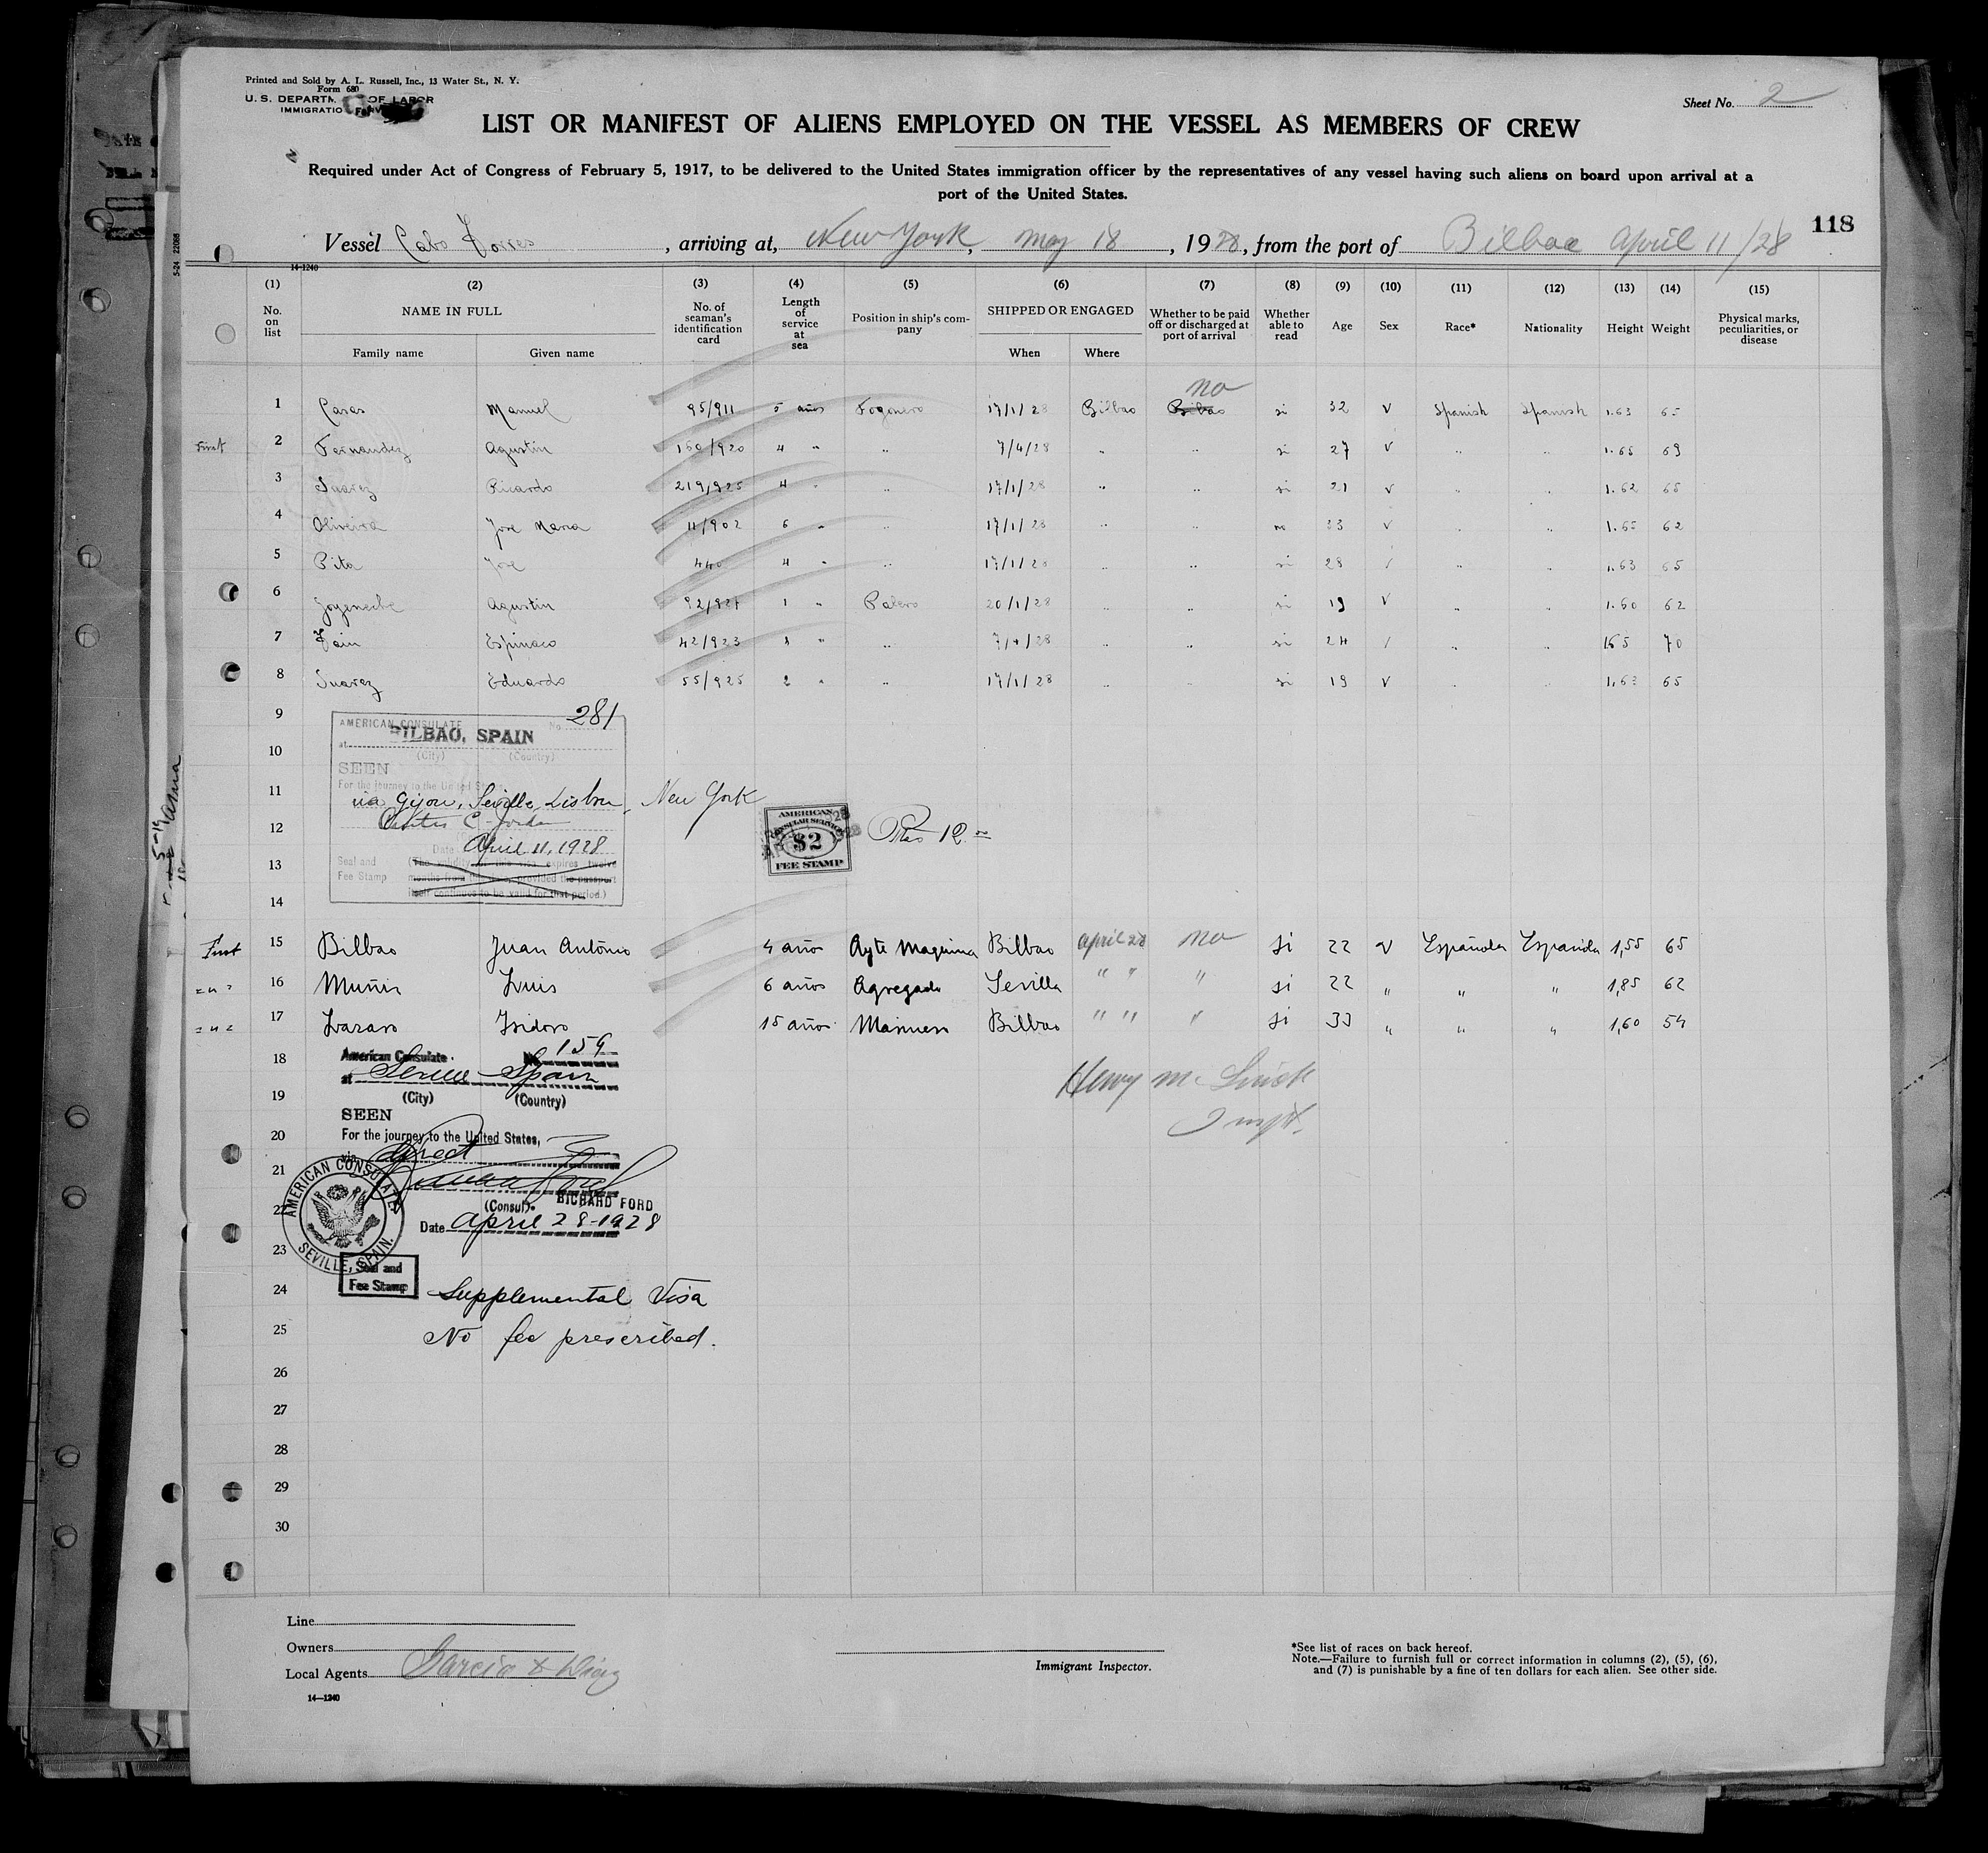 Printed and Sold by A. L. Russell, Inc., 13 Water St., N. Y.
Form 680
U. S. DEPARTM OF LABOR
IMMIGRATIO
Sheet No. 2
LIST OR MANIFEST OF ALIENS EMPLOYED ON THE VESSEL AS MEMBERS OF CREW
Required under Act of Congress of February 5, 1917, to be delivered to the United States immigration officer by the representatives of any vessel having such aliens on board upon arrival at a
port of the United States.
118
Vessel Cabo Torres, arriving at, New York, May 18, 1928, from the port of Bilbao April 11/28
14-1240
5-24 22088
(1) (2) (3) (4) (5) (6) (7) (8) (9) (10) (11) (12) (13) (14) (15)
No. on list
NAME IN FULL
Family name Given name
No. of seaman's identification card
Length of service at sea
Position in ship's company
SHIPPED OR ENGAGED
When Where
Whether to be paid off or discharged at port of arrival
Whether able to read
Age Sex Race* Nationality Height Weight
Physical marks, peculiarities, or disease
no
1 Casas Manuel 95/911 5 años Fogonero 17/1/28 Bilbao Bilbao si 32 V Spanish Spanish 1.63 65
First 2 Fernandez Agustin 160/920 4 " " 7/4/28 " " si 27 V " " 1.65 69
3 Suarez Ricardo 219/925 4 " " 17/1/28 " " si 21 V " " 1.62 65
4 Oliveira Jose Maria 11/902 6 " " 17/1/28 " " no 33 V " " 1.65 62
5 Pita Jose 440 4 " " 17/1/28 " " si 28 / " " 1.63 65
6 Goyeneche Agustin 92/921 1 " Palero 20/1/28 " " si 19 V " " 1.60 62
7 Fain Espinaco 42/923 " " 7/4/28 " " si 24 / " " 165 70
8 Suarez Eduardo 55/925 2 " " 17/1/28 " " si 19 V " " 1.63 65
9
10
11
12
13
14
AMERICAN CONSULATE No. 281
at BILBAO, SPAIN
(City) (Country)
SEEN
For the journey to the United St
via Gijon, Seville, Lisbon, New York
C. Jordan
Date April 11, 1928
Seal and Fee Stamp
(The validity of this visa expires twelve
months from this date, provided the passport
itself continues to be valid for that period.)
AMERICAN
CONSULAR SERVICE
$2
FEE STAMP
Ptas 12.00
First 15 Bilbao Juan Antonio 4 años Ayte Maquina Bilbao April 28 no si 22 V Española Española 1,55 65
= " = 16 Muñis Luis 6 años Agregado Sevilla " " " si 22 " " " 1,85 62
= " = 17 Lazaro Isidoro 15 años Marinero Bilbao " " " si 33 " " " 1,60 54
18
19
20
21
22
23
24
25
26
27
28
29
30
American Consulate No 159
at Seville Spain
(City) (Country)
SEEN
For the journey to the United States,
via direct
(Consul) RICHARD FORD
Date April 28-1928
AMERICAN CONSULATE
SEVILLE, SPAIN.
Seal and
Fee Stamp
Supplemental Visa
No fee prescribed.
Henry Mc
Inspt.
Line
Owners
Local Agents Garcia & Diaz
14—1240
Immigrant Inspector.
*See list of races on back hereof.
Note.—Failure to furnish full or correct information in columns (2), (5), (6),
and (7) is punishable by a fine of ten dollars for each alien. See other side.